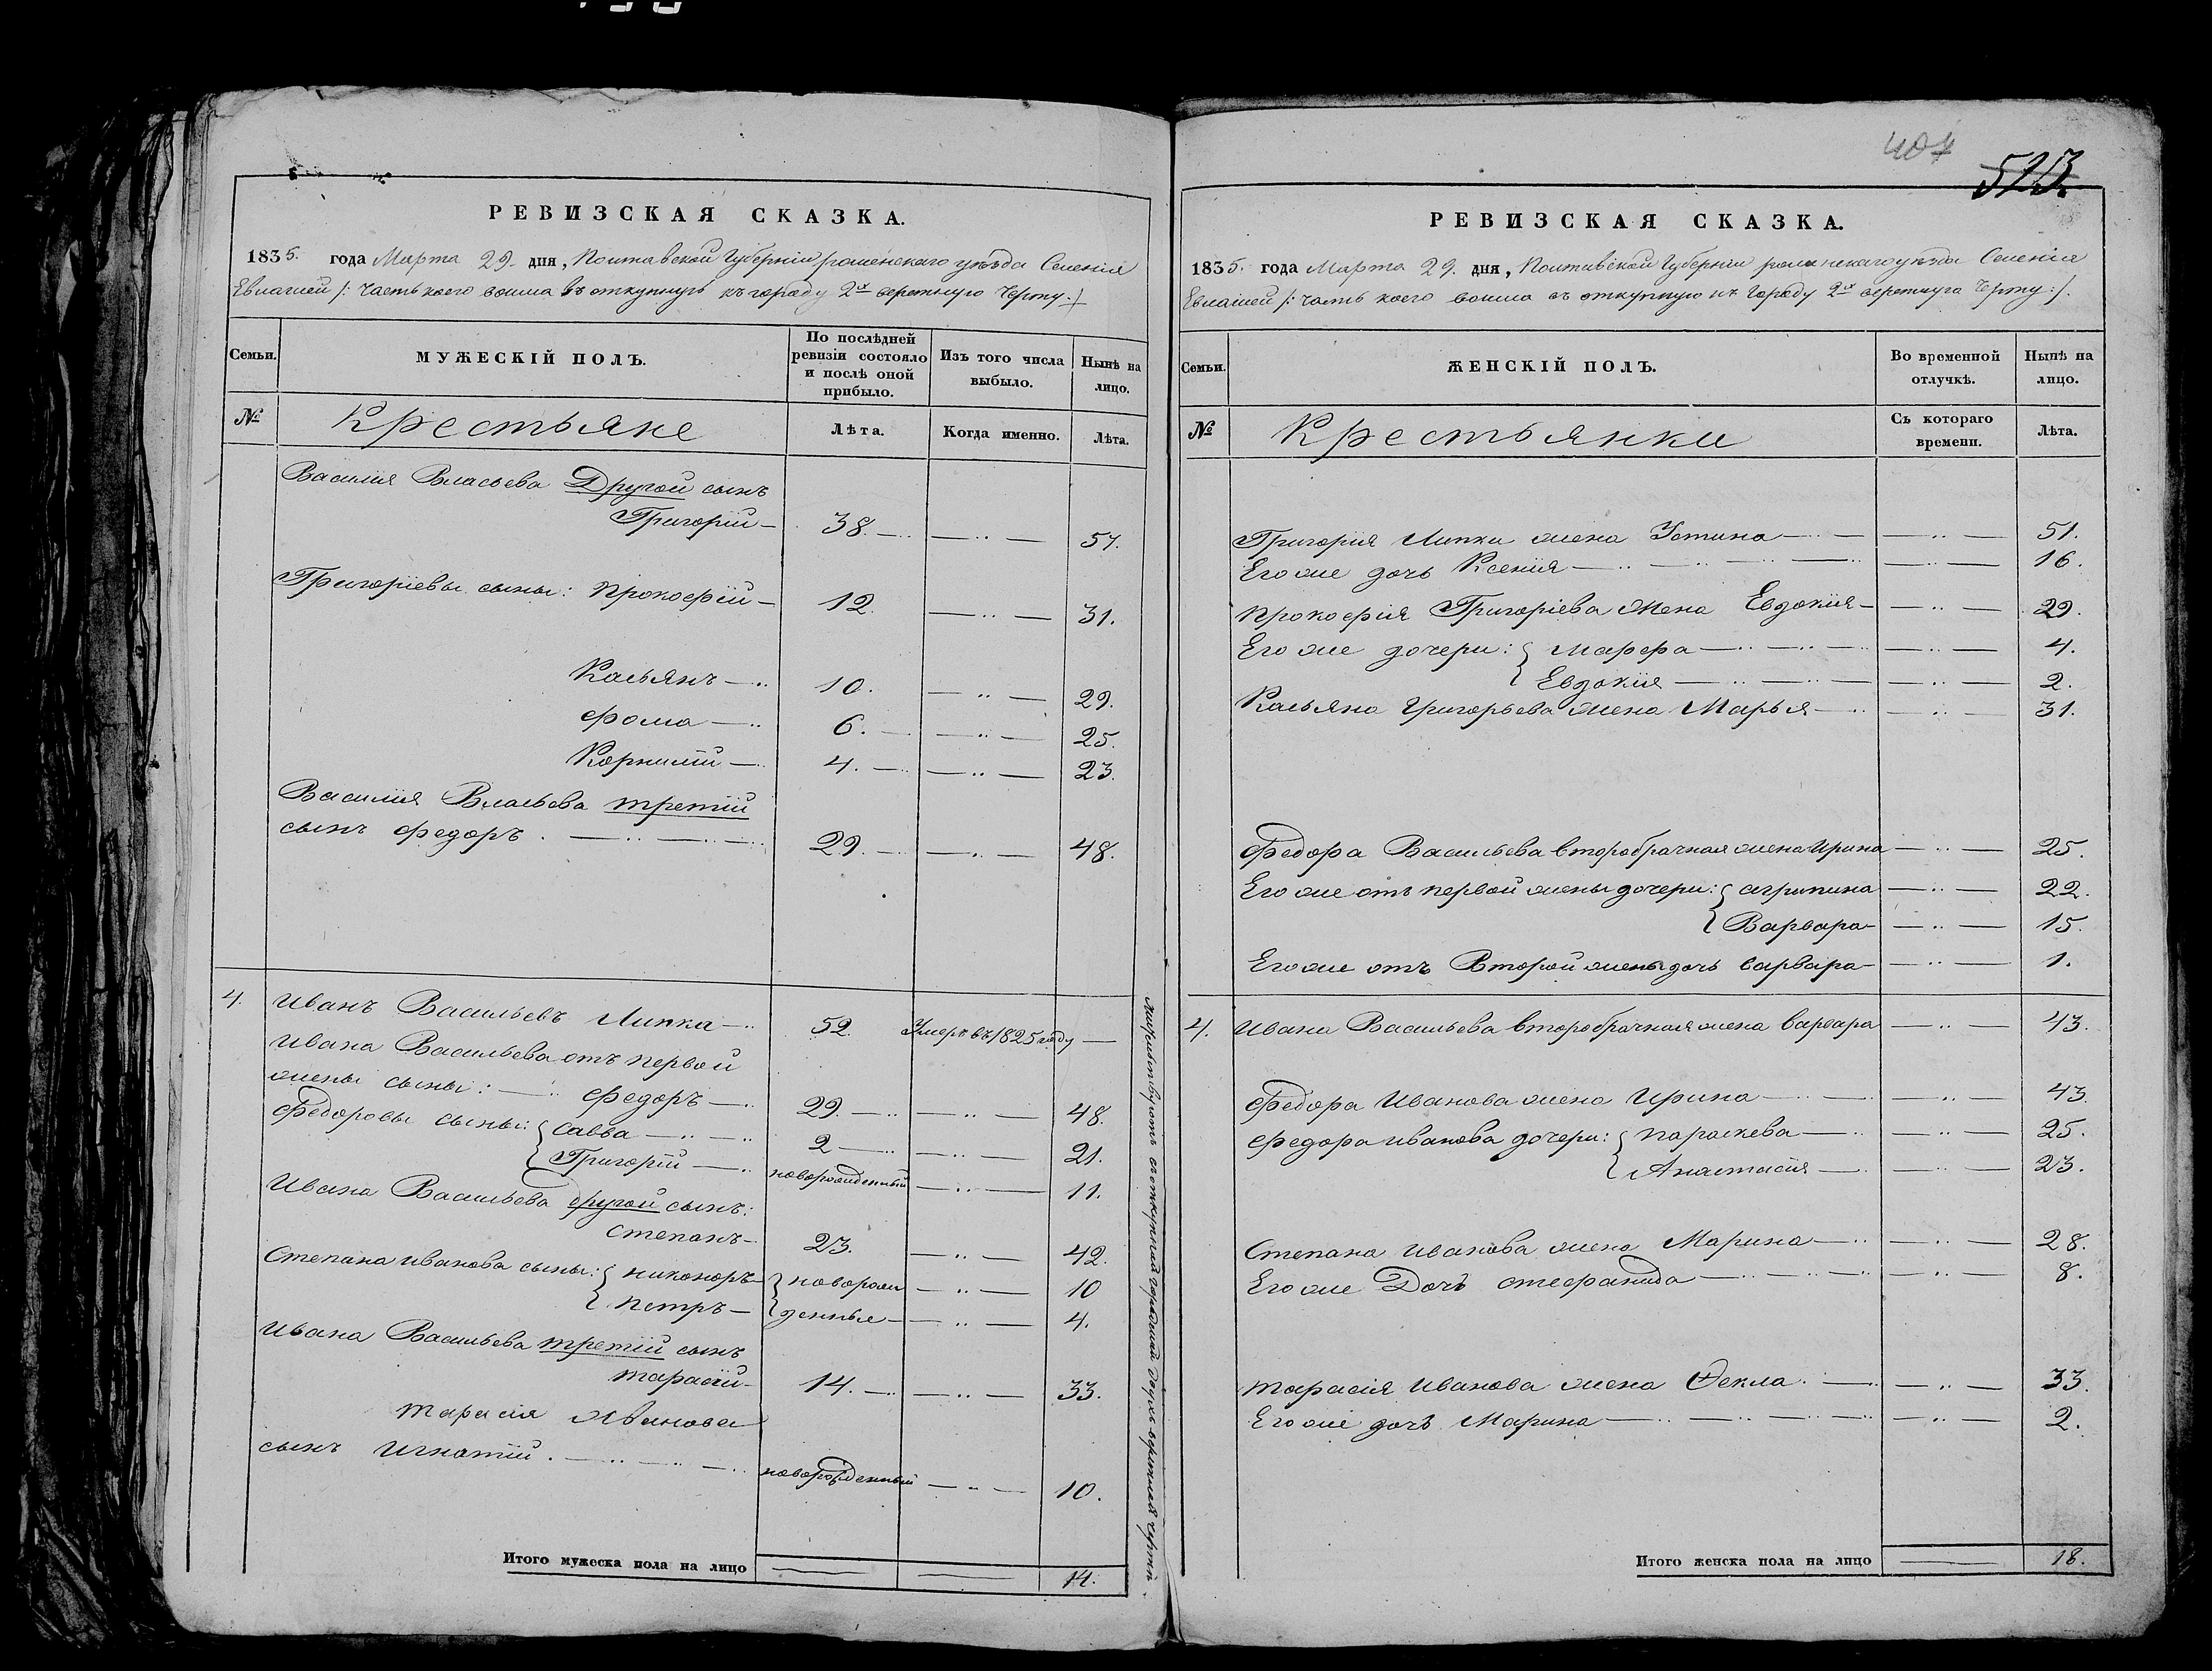 407
513.
РЕВИЗСКАЯ СКАЗКА.
1835. года Марта 29. дня, Полтавской Губерніи роменскаго уѣзда Селенія
Евлашей /: Часть коего вошла въ откупную къ городу 2х верстную Черту :/
Семьи.
МУЖЕСКІЙ ПОЛЪ.
По послѣдней ревизіи состояло и послѣ оной прибыло.
Изъ того числа выбыло.
Нынѣ на лицо.
№
Крестьяне
Лѣта.
Когда именно.
Лѣта.
Василія Власьева Другой сынъ
Григорій — 38. — 57.
Григоріевы сыны: Прокофій — 12. — 31.
Касьянъ — 10. — 29.
Фома — 6. — 25.
Корнилій — 4. — 23.
Василія Власьева третій
сынъ Федоръ. — 29. — 48.
4. Иванъ Васильевъ Липка — 52. Умеръ въ 1825 году —
Ивана Васильева отъ первой
жены сыны: — Федоръ — 29. — 48.
Федоровы сыны: Савва — 2 — 21.
Григорій — новорожденный — 11.
Ивана Васильева другой сынъ:
Степанъ — 23. — 42.
Степана Иванова сыны: Никоноръ — новорож — 10
Петръ — денные — 4.
Ивана Васильева третій сынъ
Тарасій — 14. — 33.
Тарасія Иванова
сынъ Игнатій. — новорожденный — 10.
Итого мужеска пола на лицо 14.
РЕВИЗСКАЯ СКАЗКА.
1835. года Марта 29. дня, Полтавской Губерніи роменскаго уѣзда Селенія
Евлашей /: часть коего вошла въ откупную къ Городу 2х верстную Черту :/.
Семьи.
ЖЕНСКІЙ ПОЛЪ.
Во временной отлучкѣ.
Нынѣ на лицо.
№
Крестьянки
Съ котораго времени.
Лѣта.
Григорія Липки жена Устина — 51.
Его же дочь Ксенія — 16.
Прокофія Григоріева Жена Евдокія — 29.
Его же дочери: Марфа — 4.
Евдокія — 2.
Касьяна Григорьева жена Марья — 31.
Федора Васильева второбрачная жена Ирина — 25.
Его же отъ первой жены дочери: Агрипина — 22.
Варвара — 15.
Его же отъ Второй жены дочь Варвара — 1.
4. Ивана Васильева второбрачная жена Варвара — 43.
Федора Иванова жена Ирина — 43.
Федора Иванова дочери: Параскева — 25.
Анастасія — 23.
Степана Иванова жена Марина — 28.
Его же Дочь Стефанида — 8.
Тарасія Иванова жена Ѳекла. — 33.
Его же дочь Марина — 2.
Итого женска пола на лицо 18.